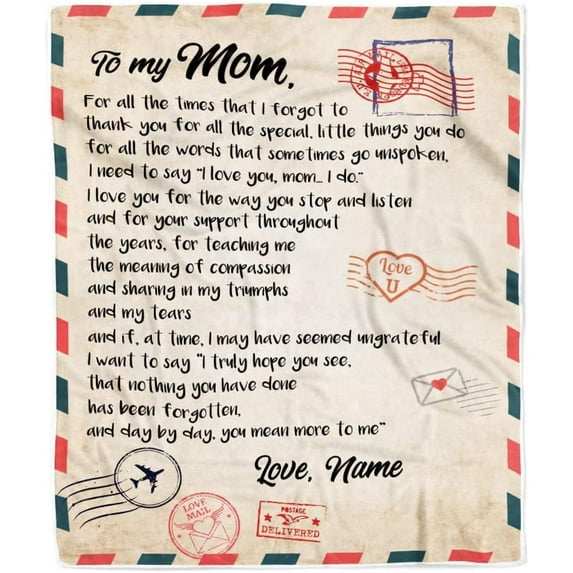 To my Mom,
For all the times that I forgot to
thank you for all the special, little things you do
for all the words that sometimes go unspoken,
I need to say "I love you, mom... I do."
I love you for the way you stop and listen
and for your support throughout
the years, for teaching me
the meaning of compassion
and sharing in my triumphs
and my tears
and if, at time, I may have seemed ungrateful
I want to say "I truly hope you see,
that nothing you have done
has been forgotten,
and day by day, you mean more to me"
Love, Name
Love
U
LOVE
MAIL
POSTAGE
DELIVERED